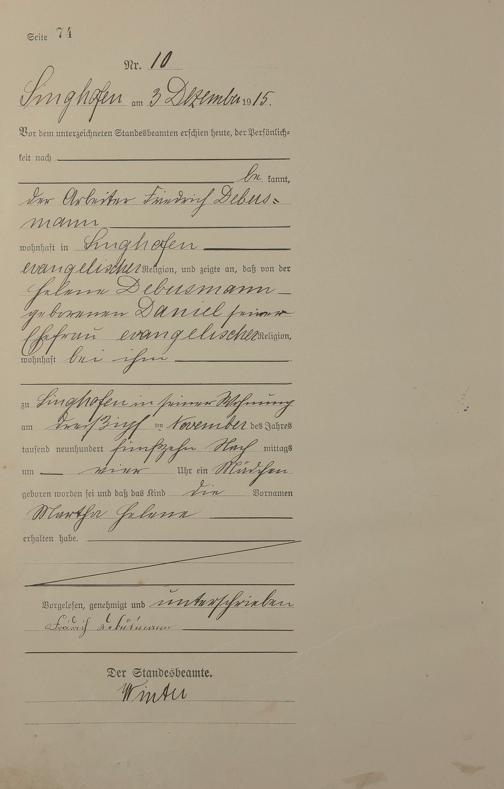 Seite 74
Nr. 10
Singhofen am 3 Dezember 1915.
Vor dem unterzeichneten Standesbeamten erschien heute, der Persönlich-
keit nach
be kannt,
der Arbeiter Friedrich Debus-
mann
wohnhaft in Singhofen
evangelischer Religion, und zeigte an, daß von der
Helene Debusmann
geborenen Daniel seiner
Ehefrau evangelischer Religion,
wohnhaft bei ihm
zu Singhofen in seiner Wohnung
am dreißigsten November des Jahres
tausend neunhundert fünfzehn Nach mittags
um vier Uhr ein Mädchen
geboren worden sei und daß das Kind die Vornamen
Martha Helene
erhalten habe.
Vorgelesen, genehmigt und unterschrieben
Debusmann
Der Standesbeamte.
Winter